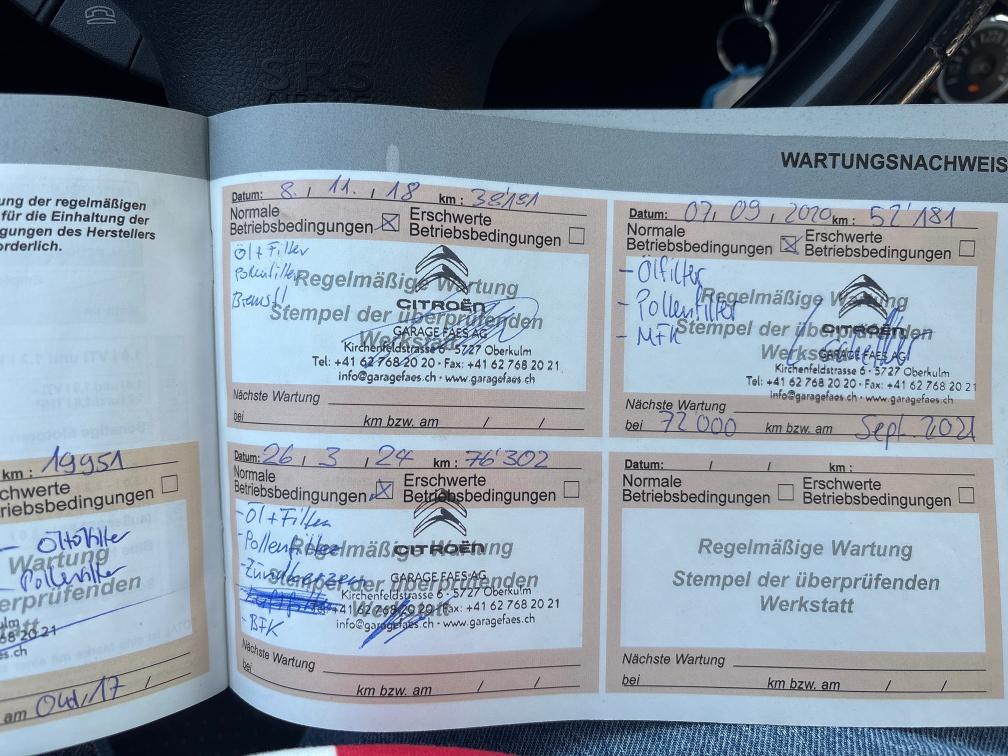 SRS
WARTUNGSNACHWEIS
ung der regelmäßigen
für die Einhaltung der
gungen des Herstellers
orderlich.
Datum: 8. 11. 18 km: 38'191
Normale
Betriebsbedingungen
Erschwerte
Betriebsbedingungen
Öl + Filter
Pollenfilter
Bremsfl
Regelmäßige Wartung
Stempel der überprüfenden
Werkstatt
CITROËN
GARAGE FAES AG
Kirchenfeldstrasse 6 · 5727 Oberkulm
Tel: +41 62 768 20 20 · Fax: +41 62 768 20 21
info@garagefaes.ch · www.garagefaes.ch
Nächste Wartung
bei km bzw. am / /
Datum: 07. 09. 2020 km: 52'181
Normale
Betriebsbedingungen
Erschwerte
Betriebsbedingungen
- Ölfilter
- Pollenfilter
- MFK
Regelmäßige Wartung
Stempel der überprüfenden
Werkstatt
CITROËN
GARAGE FAES AG
Kirchenfeldstrasse 6 · 5727 Oberkulm
Tel: +41 62 768 20 20 · Fax: +41 62 768 20 21
info@garagefaes.ch · www.garagefaes.ch
Nächste Wartung
bei 72000 km bzw. am Sept. 2021
km: 19951
chwerte
riebsbedingungen
- Öl+Ölfilter
- Pollenfilter
Wartung
erprüfenden
tt
ulm
68 20 21
es.ch
am Okt, 17 /
Datum: 26 , 3 , 24 km: 76'302
Normale
Betriebsbedingungen
Erschwerte
Betriebsbedingungen
- Öl + Filter
- Pollenfilter
- Zündkerzen
- BFK
Regelmäßige Wartung
Stempel der überprüfenden
Werkstatt
CITROËN
GARAGE FAES AG
Kirchenfeldstrasse 6 · 5727 Oberkulm
Tel: +41 62 768 20 20 · Fax: +41 62 768 20 21
info@garagefaes.ch · www.garagefaes.ch
Nächste Wartung
bei km bzw. am / /
Datum: / / km:
Normale
Betriebsbedingungen
Erschwerte
Betriebsbedingungen
Regelmäßige Wartung
Stempel der überprüfenden
Werkstatt
Nächste Wartung
bei km bzw. am / /